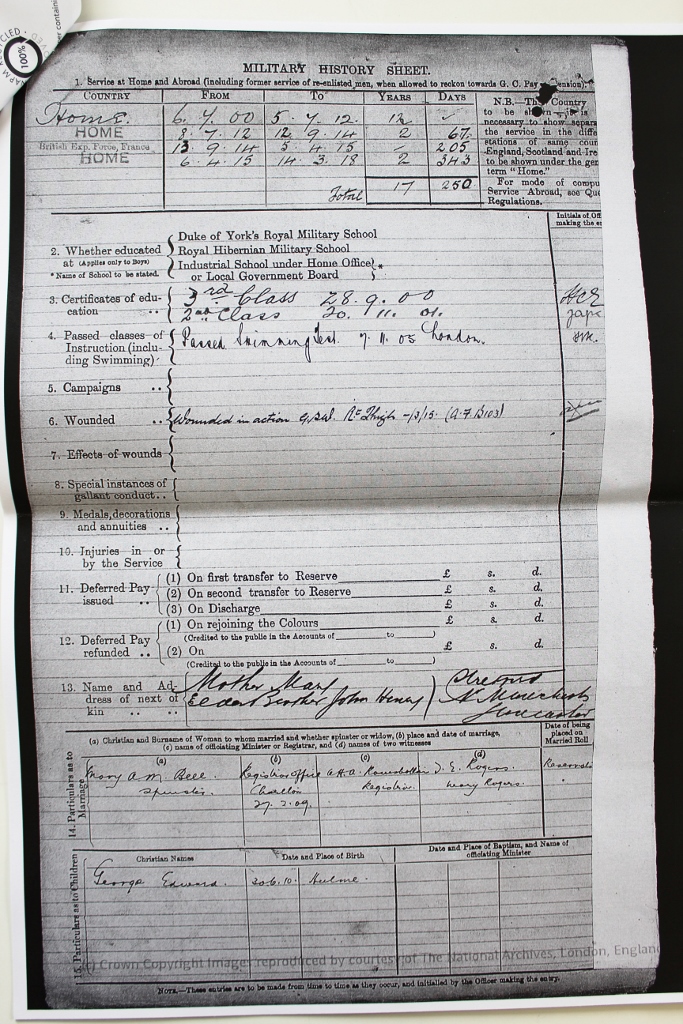 100%
MILITARY HISTORY SHEET.
1. Service at Home and Abroad (including former service of re-enlisted men, when allowed to reckon towards G. C. Pay ension).
COUNTRY FROM TO YEARS DAYS
Home. 6. 7. 00 5. 7. 12. 12 -
HOME 8. 7. 12 12. 9. 14 2 67
British Exp. Force, France 13. 9. 14 5. 4. 15 - 205
HOME 6. 4. 15 14. 3. 18 2 343
Total 17 250
N.B. The Country
to be shown is
necessary to show separa
the service in the diffe
stations of same coun
England, Scotland and Ire
to be shown under the gen
term "Home."
For mode of compu
Service Abroad, see Que
Regulations.
Initials of Off
making the e
2. Whether educated at (Applies only to Boys)
* Name of School to be stated.
Duke of York's Royal Military School
Royal Hibernian Military School
Industrial School under Home Office
or Local Government Board *
3. Certificates of edu-
cation ..
3rd Class 28. 9. 00
2nd Class 20. 11. 01.
4. Passed classes of
Instruction (inclu-
ding Swimming)
Passed Swimming Test. 7. 11. 05 London.
5. Campaigns ..
6. Wounded .. Wounded in action G.S.W. Rt Thigh -/3/15. (A.F. B103)
7. Effects of wounds
8. Special instances of
gallant conduct ..
9. Medals, decorations
and annuities ..
10. Injuries in or
by the Service
11. Deferred Pay
issued ..
(1) On first transfer to Reserve £ s. d.
(2) On second transfer to Reserve £ s. d.
(3) On Discharge £ s. d.
12. Deferred Pay
refunded ..
(1) On rejoining the Colours £ s. d.
(Credited to the public in the Accounts of to )
(2) On £ s. d.
(Credited to the public in the Accounts of to )
13. Name and Ad-
dress of next of
kin .. ..
Mother Mary
Eldest Brother John Henry
14. Particulars as to Marriage
(a) Christian and Surname of Woman to whom married and whether spinster or widow, (b) place and date of marriage,
(c) name of officiating Minister or Registrar, and (d) names of two witnesses
Date of being
placed on
Married Roll
(a) (b) (c) (d)
Mary A. M. Bell Registrar Office J. E. Rogers Reservist
Spinster. Chorlton Registrar. Mary Rogers.
27. 2. 09.
15. Particulars as to Children
Christian Names Date and Place of Birth Date and Place of Baptism, and Name of
officiating Minister
George Edward. 20.6.10. Hulme.
(c) Crown Copyright Images reproduced by courtesy of The National Archives, London, England
NOTE.—These entries are to be made from time to time as they occur, and initialled by the Officer making the entry.